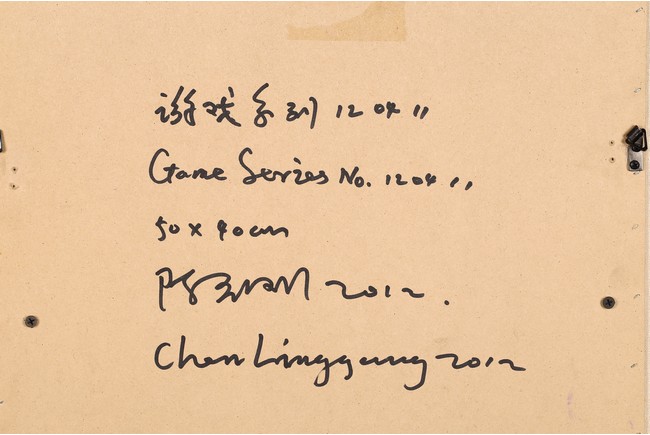 游戏系列 120411
Game Series No. 120411
50 x 40cm
2012.
Chen Linggang 2012